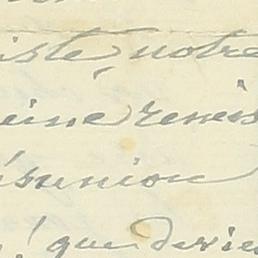 iste, notre
eine remis
ésunion
! que devie